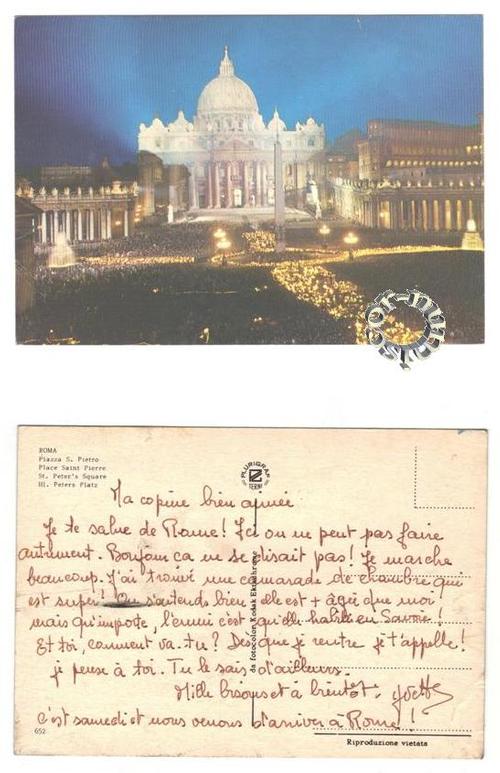 ROMA
Piazza S. Pietro
Place Saint Pierre
St. Peter's Square
Hl. Peters Platz
PLURIGRAF
TERNI
da fotocolor Kodak Ektachrome
Ma copine bien aimée
Je te salue de Rome! Ici on ne peut pas faire
autrement. Bonjour ça ne se disait pas! Je marche
beaucoup. J'ai trouvé une camarade de chambre qui
est super! On s'entend bien elle est + âgée que moi
mais qu'importe, l'ennui c'est qu'elle habite en
Et toi, comment vas-tu? Dès que je rentre je t'appelle!
je pense à toi. Tu le sais d'ailleurs.
Mille bisous et à bientôt. Yvette
C'est samedi et nous venons d'arriver à Rome!
652
Riproduzione vietata